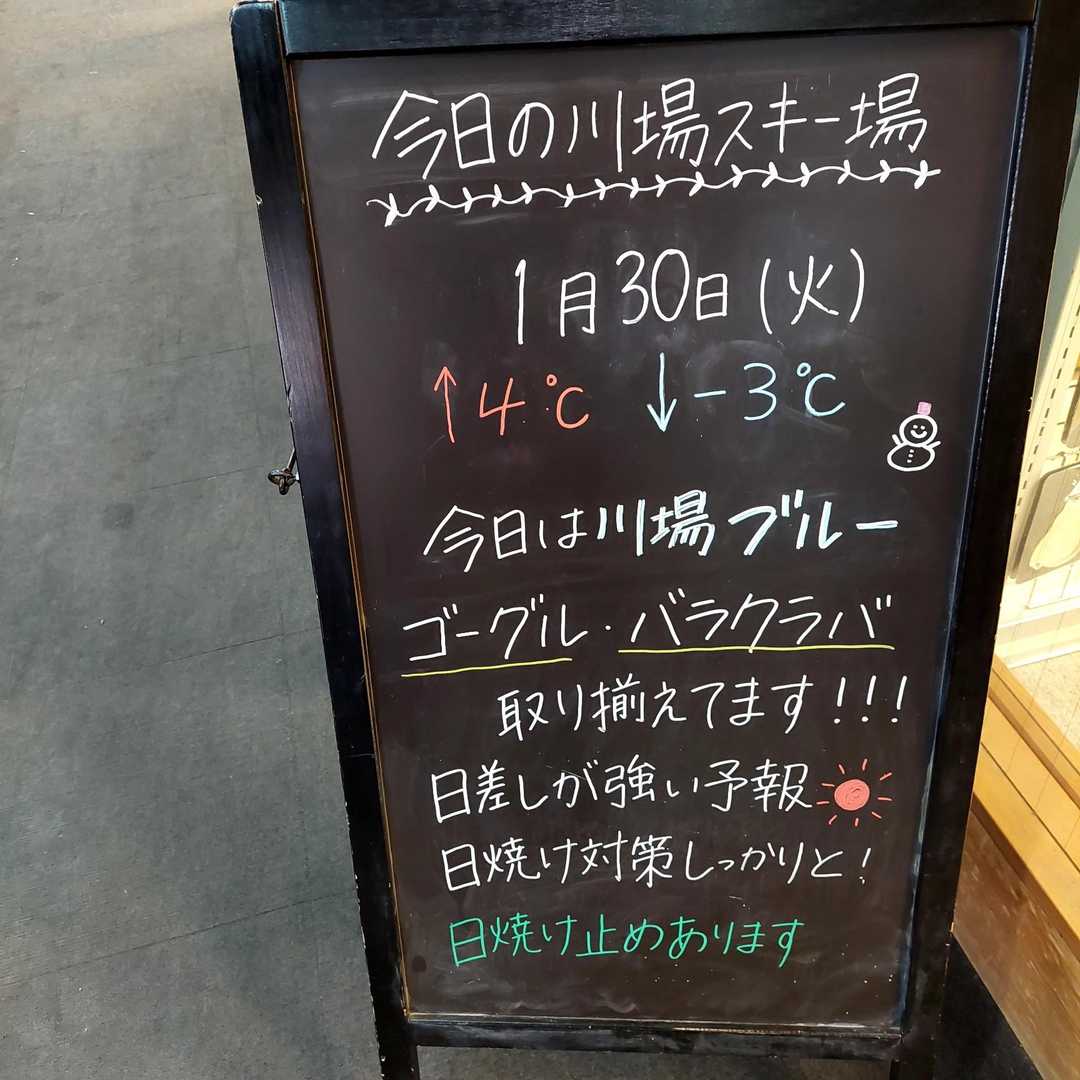 今日の川場スキー場
1月30日(火)
↑4℃ ↓-3℃
今日は川場ブルー
ゴーグル・バラクラバ
取り揃えてます!!!
日差しが強い予報
日焼け対策しっかりと!
日焼け止めあります